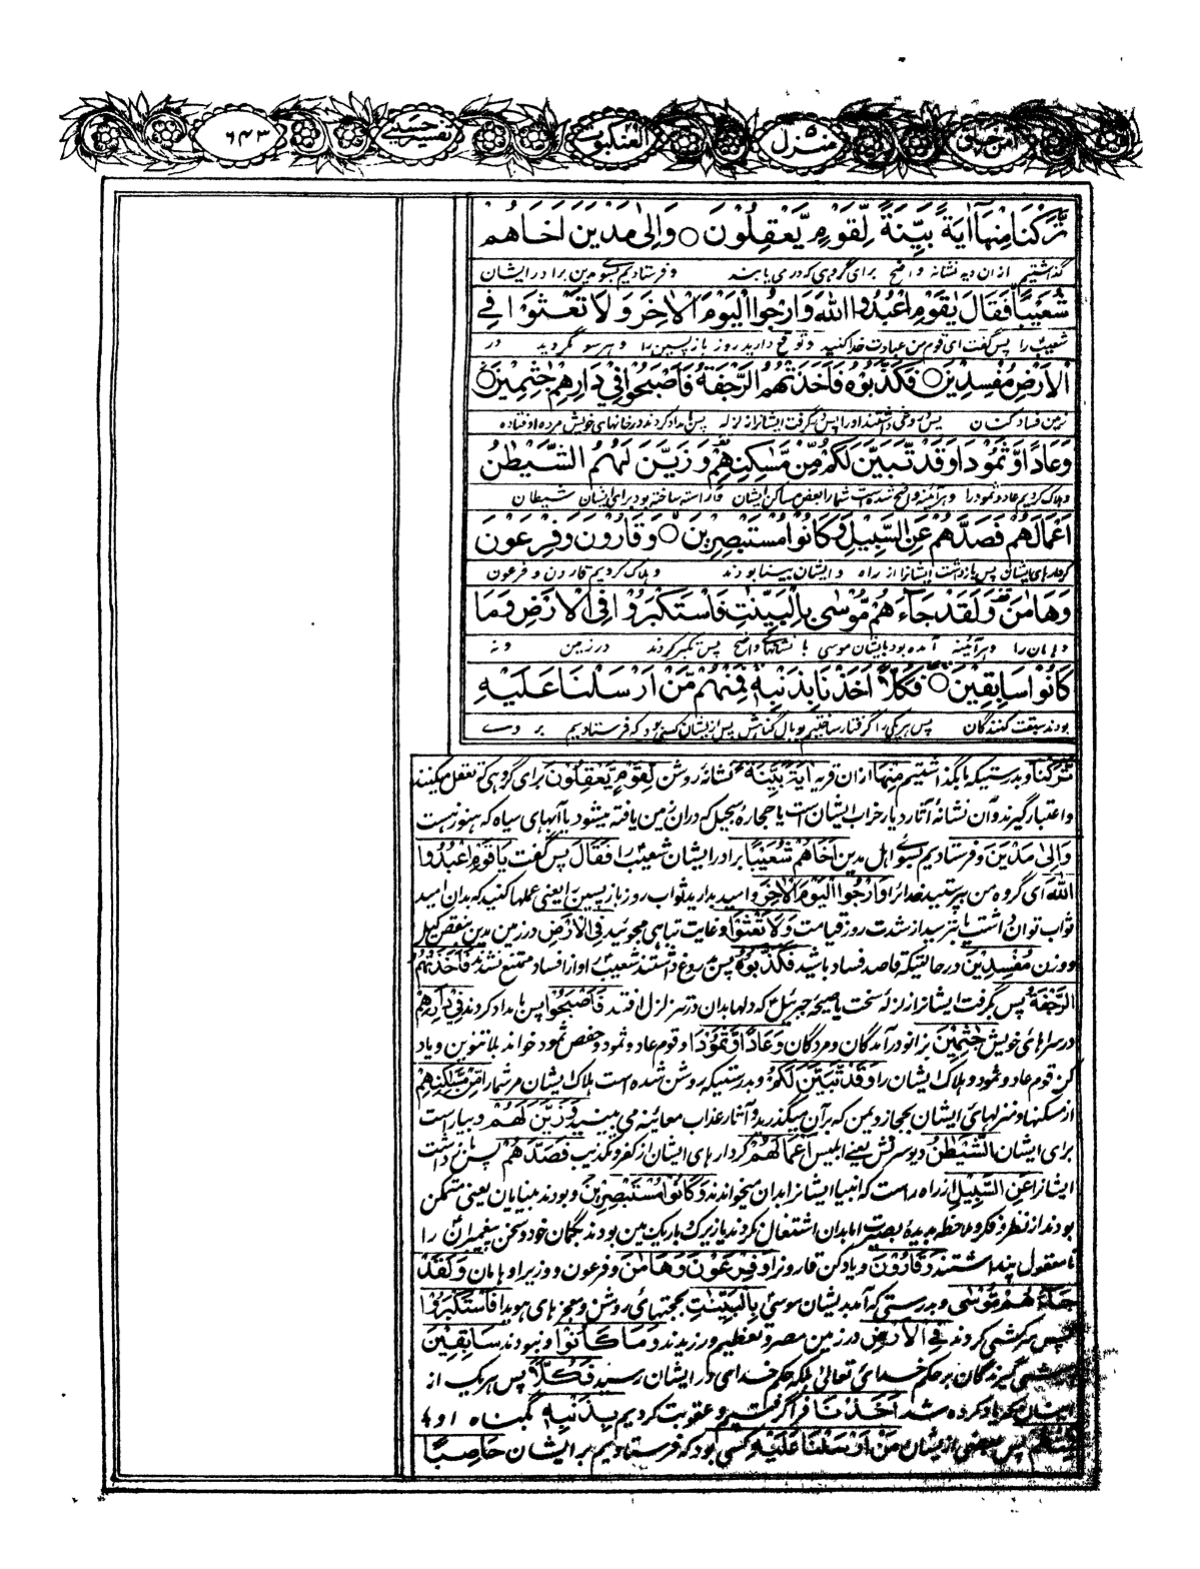 امن خلق منزل العنكبوت تفسیر حسینی ٦٤٣
تَّرَكْنَا مِنْهَا اٰيَةًۢ بَيِّنَةً لِّقَوْمٍ يَّعْقِلُوْنَ ○ وَاِلٰى مَدْيَنَ اَخَاهُمْ
گذاشتیم ازان دیه نشانهٔ واضح برای گروهی که درمی یابند و فرستادیم بسوی مدین برادر ایشان
شُعَيْبًا فَقَالَ يٰقَوْمِ اعْبُدُوا اللّٰهَ وَارْجُوا الْيَوْمَ الْاٰخِرَ وَلَا تَعْثَوْا فِي
شعیبؑ را پس گفت ای قوم من عبادت خدا کنید و توقع دارید روز بازپسین را و هر سو مگردید در
الْاَرْضِ مُفْسِدِيْنَ ○ فَكَذَّبُوْهُ فَاَخَذَتْهُمُ الرَّجْفَةُ فَاَصْبَحُوْا فِيْ دَارِهِمْ جٰثِمِيْنَ ○
زمین فساد کنان پس دروغی داشتند او را پس بگرفت ایشانرا زلزله پس بامداد کردند در خانهای خویش مرده افتاده
وَعَادًا وَّثَمُوْدَا۟ وَقَدْ تَّبَيَّنَ لَكُمْ مِّنْ مَّسٰكِنِهِمْ وَزَيَّنَ لَهُمُ الشَّيْطٰنُ
و هلاک کردیم عاد و ثمود را و هر آئینه واضح شده است شما را بعض مساکن ایشان و آراسته ساخته بود برای ایشان شیطان
اَعْمَالَهُمْ فَصَدَّهُمْ عَنِ السَّبِيْلِ وَكَانُوْا مُسْتَبْصِرِيْنَ ○ وَقَارُوْنَ وَفِرْعَوْنَ
کردارهای ایشان پس بازداشت ایشانرا از راه و ایشان بینا بودند و هلاک کردیم قارون و فرعون
وَهَامٰنَ وَلَقَدْ جَآءَهُمْ مُّوْسٰى بِالْبَيِّنٰتِ فَاسْتَكْبَرُوْا فِي الْاَرْضِ وَمَا
و هامان را و هر آئینه آمده بود بایشان موسی با نشانهای واضح پس تکبر کردند در زمین و نه
كَانُوْا سَابِقِيْنَ ○ فَكُلًّا اَخَذْنَا بِذَنْۢبِهٖ فَمِنْهُمْ مَّنْ اَرْسَلْنَا عَلَيْهِ
بودند سبقت کنندگان پس هر یکی را گرفتار ساختیم بوبال گناهش پس از ایشان کسی بود که فرستادیم بر وے
تَّرَكْنَا و بدرستیکه ما بگذاشتیم مِنْهَا ازان قریه اٰيَةًۢ بَيِّنَةً نشانهٔ روشن لِقَوْمٍ يَّعْقِلُوْنَ برای گروهی که تعقل میکنند
و اعتبار گیرند و آن نشانهٔ آثار دیار خراب ایشان است یا حجارهٔ سجیل که دران زمین یافته میشود یا آبهای سیاه که هنوز هست
وَاِلٰى مَدْيَنَ و فرستادیم بسوی اهل مدین اَخَاهُمْ شُعَيْبًا برادر ایشان شعیبؑ را فَقَالَ پس گفت يَا قَوْمِ اعْبُدُوا
اللّٰهَ ای گروه من بپرستید خدا را وَارْجُوا الْيَوْمَ الْاٰخِرَ و امید بدارید ثواب روز بازپسین را یعنی عملها کنید که بدان امید
ثواب توان داشت یا بترسید از شدت روز قیامت وَلَا تَعْثَوْا و غایت تباهی مجوئید فِي الْاَرْضِ در زمین مدین بنقص کیل
و وزن مُفْسِدِيْنَ در حالتیکه قاصد فساد باشید فَكَذَّبُوْهُ پس دروغ داشتند شعیبؑ را و از افساد ممتنع نشدند فَاَخَذَتْهُمُ
الرَّجْفَةُ پس بگرفت ایشانرا زلزلهٔ سخت یا صیحهٔ جبرئیلؑ که دلها بدان در تزلزل افتد فَاَصْبَحُوْا پس بامداد کردند فِيْ دَارِهِمْ
در سراهای خویش جٰثِمِيْنَ بزانو درآمدگان و مردگان وَعَادًا وَّثَمُوْدَا و قوم عاد و ثمود و حفص ثمود خواند بلا تنوین و یاد
کن قوم عاد و ثمود و هلاک ایشان را وَقَدْ تَّبَيَّنَ لَكُمْ و بدرستیکه روشن شده است هلاک ایشان مر شما را مِنْ مَّسٰكِنِهِمْ
از مسکنها و منزلهای ایشان بحجاز و یمن که بر آن میگذرید و آثار عذاب معائنه می بینید وَزَيَّنَ لَهُمُ و بیاراست
برای ایشان الشَّيْطٰنُ دیو سرکش یعنی ابلیس اَعْمَالَهُمْ کردارهای ایشان از کفر و تکذیب فَصَدَّهُمْ پس باز داشت
ایشانرا عَنِ السَّبِيْلِ از راه راست که انبیا ایشانرا بدان میخواندند وَكَانُوْا مُسْتَبْصِرِيْنَ و بودند بینایان یعنی متمکن
بودند از نظر و فکر و ملاحظه بدیدهٔ بصیرت اما بدان اشتغال نکردند یا زیرک و باریک بین بودند بگمان خود و سخن پیغمبران را
نامعقول پنداشتند وَقَارُوْنَ و یاد کن قارون را وَفِرْعَوْنَ وَهَامٰنَ و فرعون و وزیر او هامان وَلَقَدْ
جَآءَهُمْ مُّوْسٰى و بدرستی که آمد بدیشان موسیؑ بِالْبَيِّنٰتِ بحجتهای روشن و معجزهای هویدا فَاسْتَكْبَرُوْا
پس سرکشی کردند فِي الْاَرْضِ در زمین مصر و تعظیم ورزیدند وَمَا كَانُوْا و نبودند سَابِقِيْنَ
گیرندگان بر حکم خدای تعالی بلکه حکم خدای در ایشان رسید فَكُلًّا پس هر یک از
یاد کرده شد اَخَذْنَا فرا گرفتیم و عقوبت کردیم بِذَنْۢبِهٖ بگناه او
پس بعضی از ایشان مَنْ اَرْسَلْنَا عَلَيْهِ کسی بود که فرستادیم بر ایشان حَاصِبًا